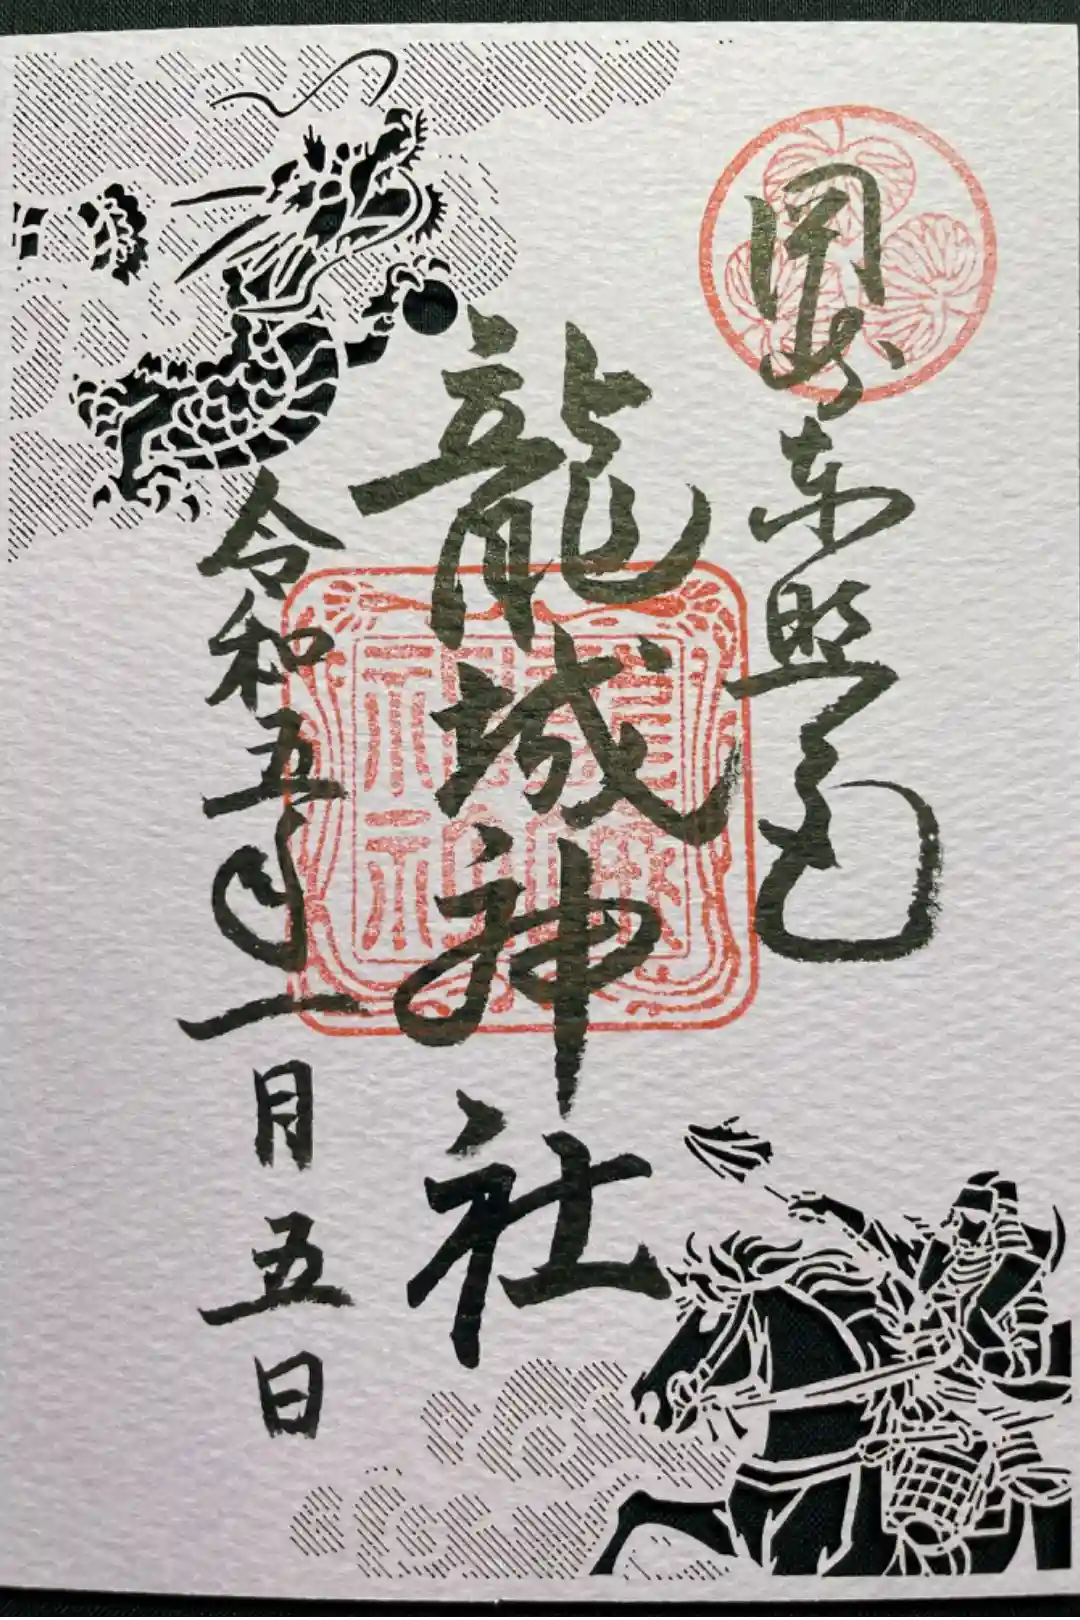 岡崎東照宮
龍城神社
令和五年一月五日